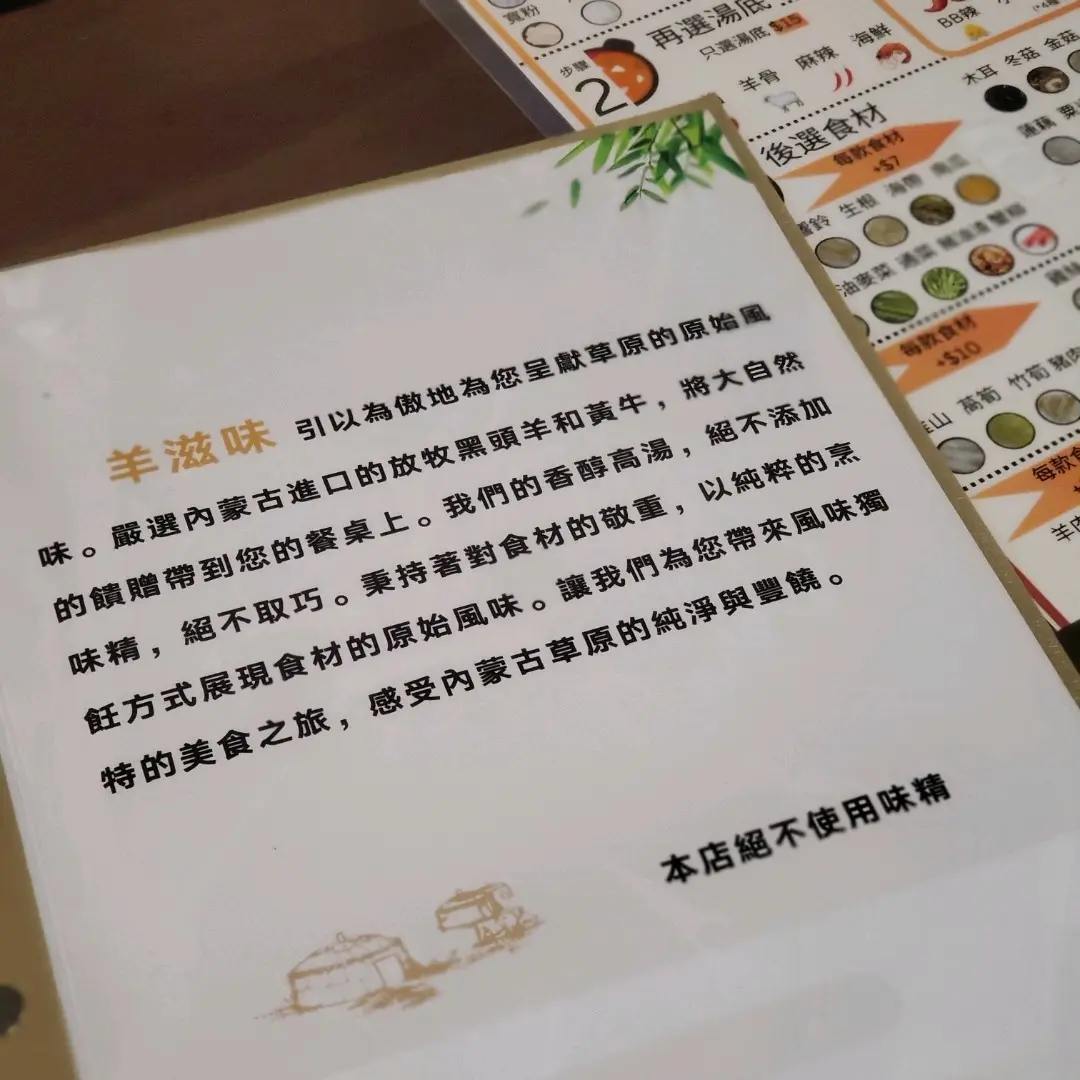 寬粉
步驟
2
再選湯底
只選湯底 $15
羊骨 麻辣 海鮮
BB辣
後選食材
木耳 冬菇 金菇
每款食材
+$7
生根 海帶
油麥菜 通菜
每款食材
+$10
萵筍 竹筍 豬肉
每款食
羊肉
羊滋味 引以為傲地為您呈獻草原的原始風
味。嚴選內蒙古進口的放牧黑頭羊和黃牛，將大自然
的饋贈帶到您的餐桌上。我們的香醇高湯，絕不添加
味精，絕不取巧。秉持著對食材的敬重，以純粹的烹
飪方式展現食材的原始風味。讓我們為您帶來風味獨
特的美食之旅，感受內蒙古草原的純淨與豐饒。
本店絕不使用味精